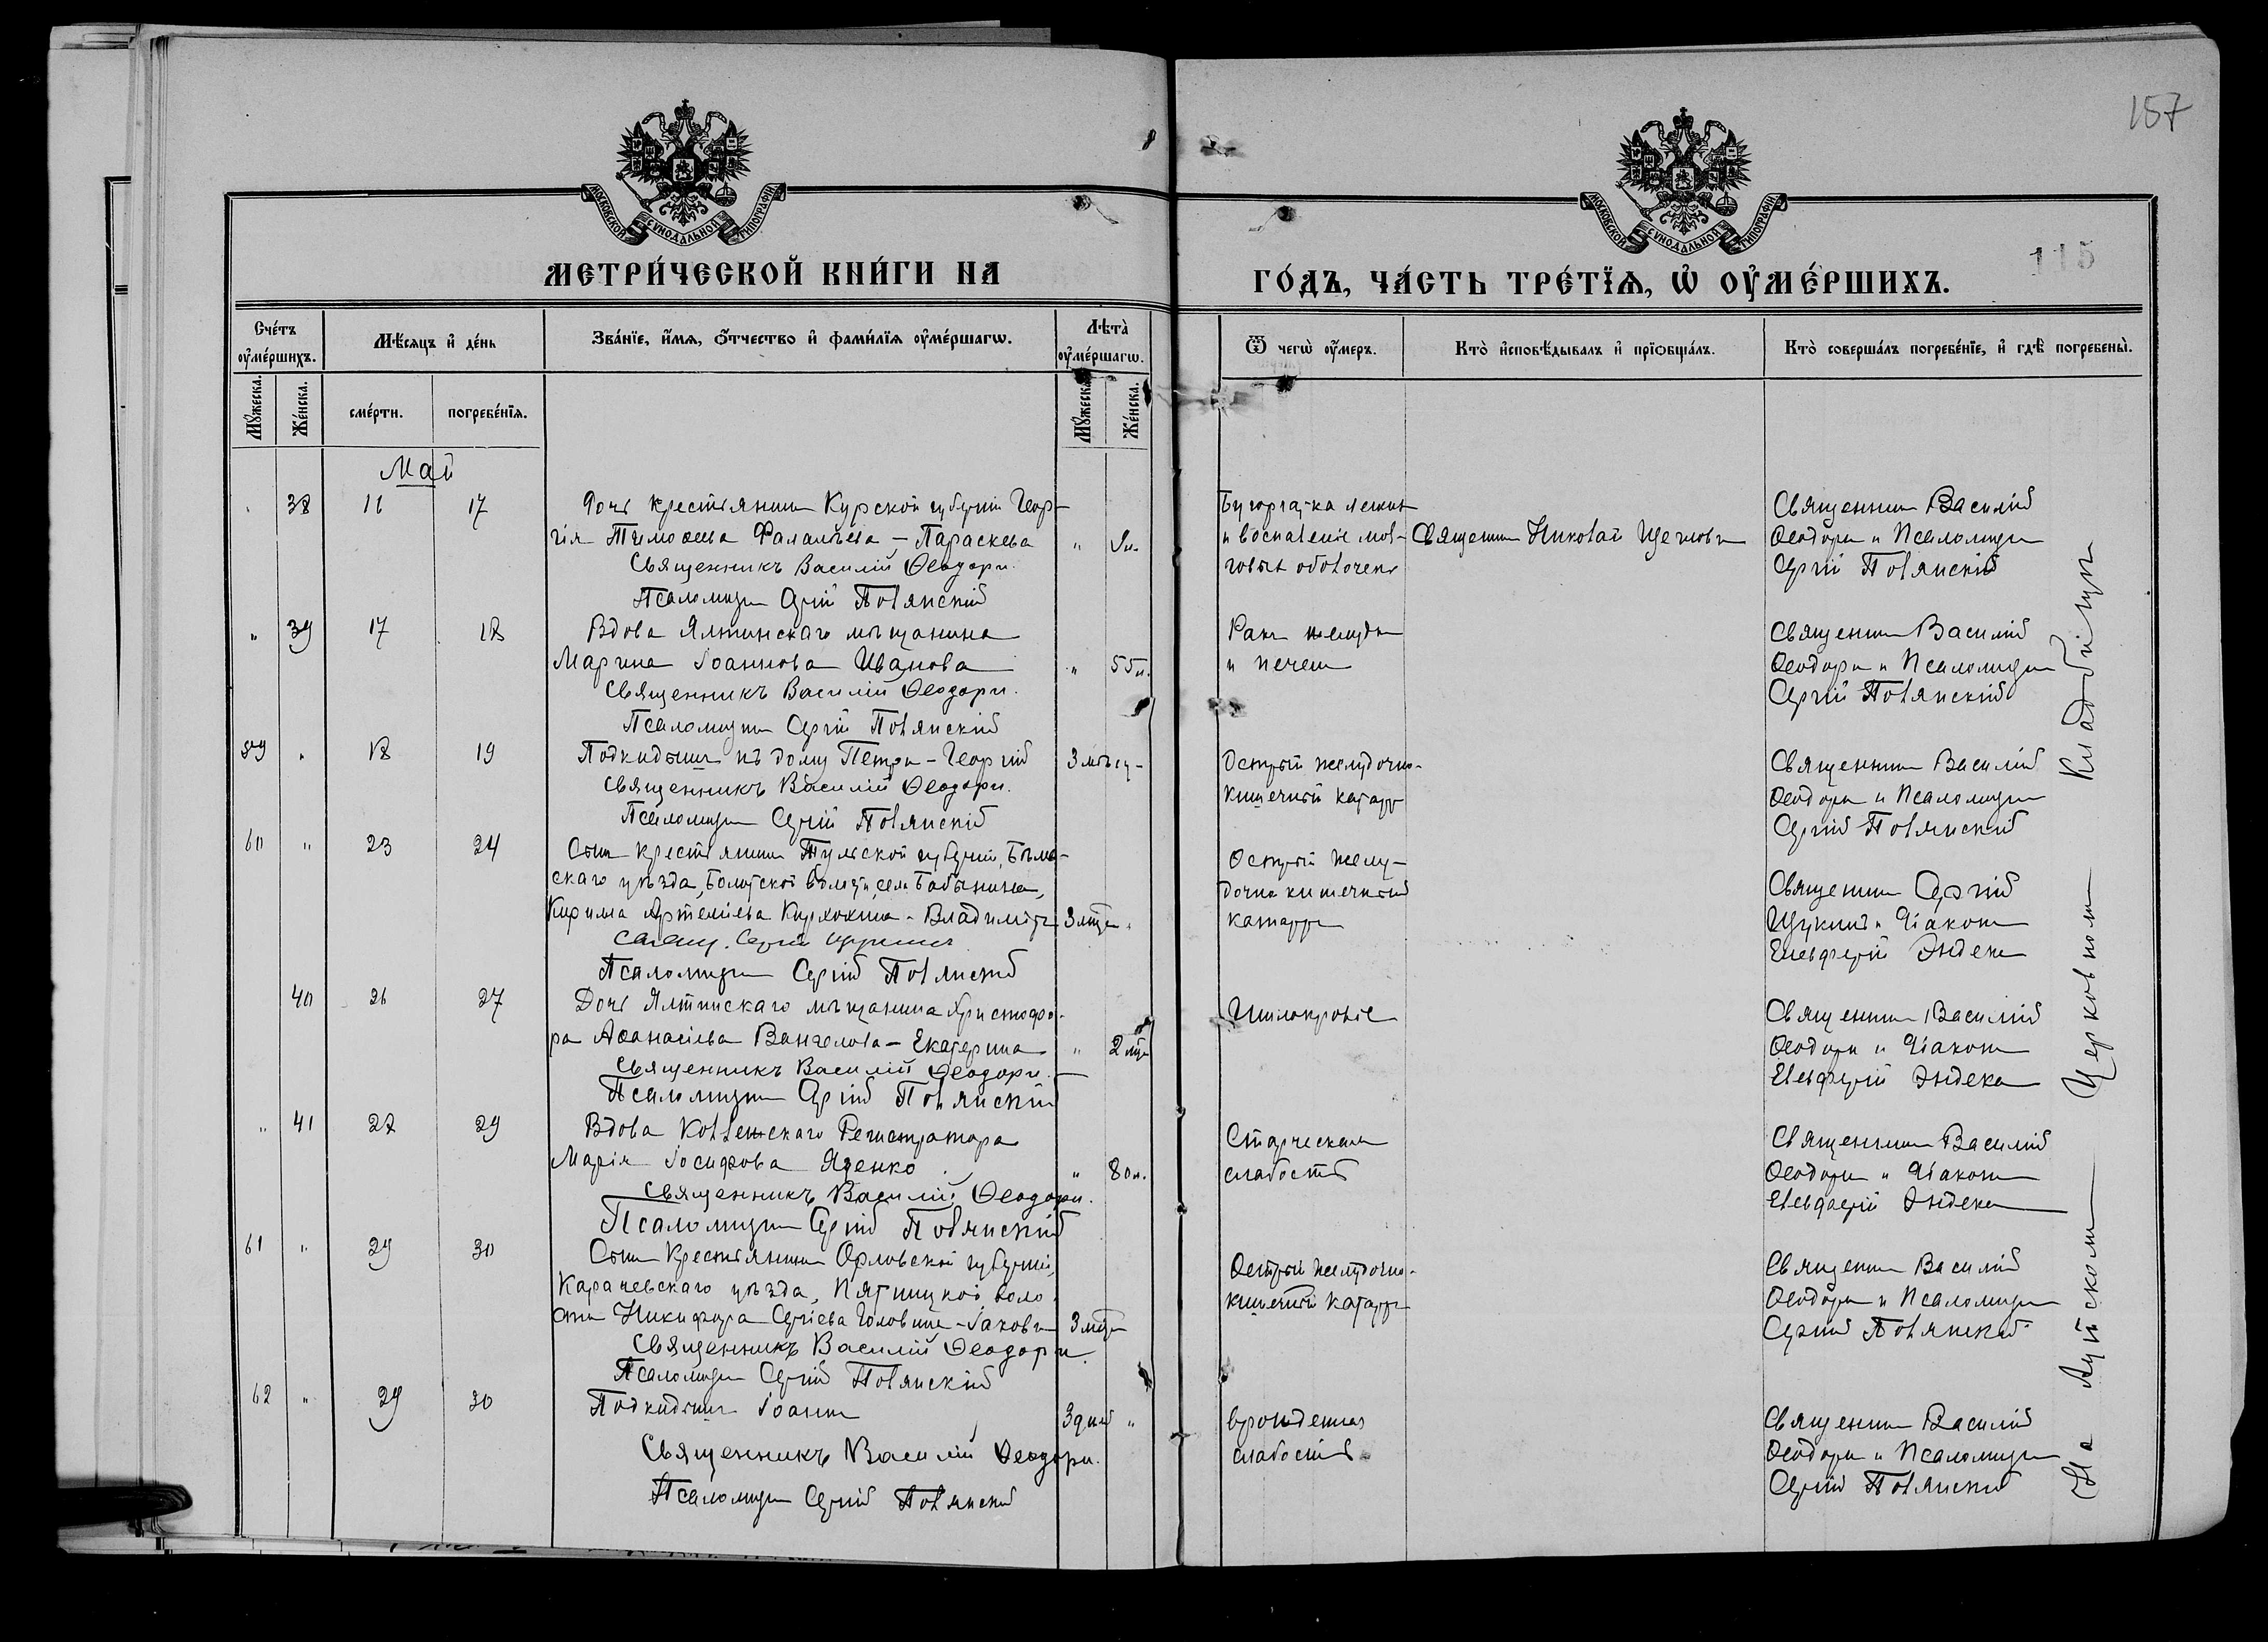 157
115
МОСКОВСКОЙ СѴНОДАЛЬНОЙ ТИПОГРАФІИ
МОСКОВСКОЙ СѴНОДАЛЬНОЙ ТИПОГРАФІИ
МЕТРИ́ЧЕСКОЙ КНИ́ГИ НА
ГО́ДЪ, ЧА́СТЬ ТРЕ́ТЇѦ, Ѡ҆ ОУ҆МЕ́РШИХЪ.
Сче́тъ оу҆ме́ршихъ.
Мѣ́сяцъ и҆ де́нь
Зва́нїе, и҆́мѧ, ѻ҆́тчество и҆ фами́лїѧ оу҆ме́ршагѡ.
Лѣ́та оу҆ме́ршагѡ.
Ѿ чегѡ̀ оу҆́меръ.
Кто̀ и҆сповѣ́дывалъ и҆ прїѡбща́лъ.
Кто̀ соверша́лъ погребе́нїе, и҆ гдѣ̀ погребены̀.
Мꙋ́жеска.
Же́нска.
сме́рти.
погребе́нїѧ.
Мꙋ́жеска.
Же́нска.
Май
38 16 17 Дочь крестьянина Курской губерніи Геор-
гія Тимоѳеева - Параскева
Священникъ Василій Ѳеодори.
Псаломщикъ Сергій Полянскій
Бугорчатка легкихъ
и воспаленіе моз-
говыхъ оболочекъ
Священникъ Николай Щегловъ
Священникъ Василій
Ѳеодори и Псаломщикъ
Сергій Полянскій
" 39 17 18 Вдова Ялтинскаго мѣщанина
Марина Іоаннова Иванова " 55 л.
Священникъ Василій Ѳеодори.
Псаломщикъ Сергій Полянскій
Ракъ желудка
и печени
Священникъ Василій
Ѳеодори и Псаломщикъ
Сергій Полянскій
59 " 18 19 Подкидышъ къ дому Петри - Георгій 3 мѣсяц-
Священникъ Василій Ѳеодори.
Псаломщикъ Сергій Полянскій
Острый желудочно-
кишечный катарръ
Священникъ Василій
Ѳеодори и Псаломщикъ
Сергій Полянскій
60 " 23 24 Сынъ крестьянина Тульской губерніи, Бѣлев-
скаго уѣзда, Болотской волости, села Бабынина,
Кирилла Артеміева - Владиміръ 3 мѣс. "
Священ. Сергій Щукинъ
Псаломщикъ Сергій Полянскій
Острый желу-
дочно кишечный
катарръ
Священникъ Сергій
Щукинъ и Діаконъ
Елевферій Эндека
40 26 27 Дочь Ялтинскаго мѣщанина Христофо-
ра Аѳанасіева Вангелова - Екатерина " 2 мѣс.
Священникъ Василій Ѳеодори.
Псаломщикъ Сергій Полянскій
Священникъ Василій
Ѳеодори и Діаконъ
Елевферій Эндека
" 41 27 29 Вдова Коллежскаго Регистратора
Марія Іосифова Яценко " 80 л.
Священникъ Василій Ѳеодори.
Псаломщикъ Сергій Полянскій
Старческая
слабость
Священникъ Василій
Ѳеодори и Діаконъ
Елевферій Эндека
61 " 29 30 Сынъ Крестьянина Орловской губерніи,
Карачевскаго уѣзда, Пятницкой воло-
сти Никифора Сергіева Головина - Іаковъ 3 мѣс.
Священникъ Василій Ѳеодори.
Псаломщикъ Сергій Полянскій
Острый желудочно-
кишечный катарръ
Священникъ Василій
Ѳеодори и Псаломщикъ
Сергій Полянскій
62 " 29 30 Подкидышъ Іоаннъ 3 дней "
Священникъ Василій Ѳеодори.
Псаломщикъ Сергій Полянскій
врожденная
слабость
Священникъ Василій
Ѳеодори и Псаломщикъ
Сергій Полянскій
На Аутскомъ Церковномъ Кладбищѣ